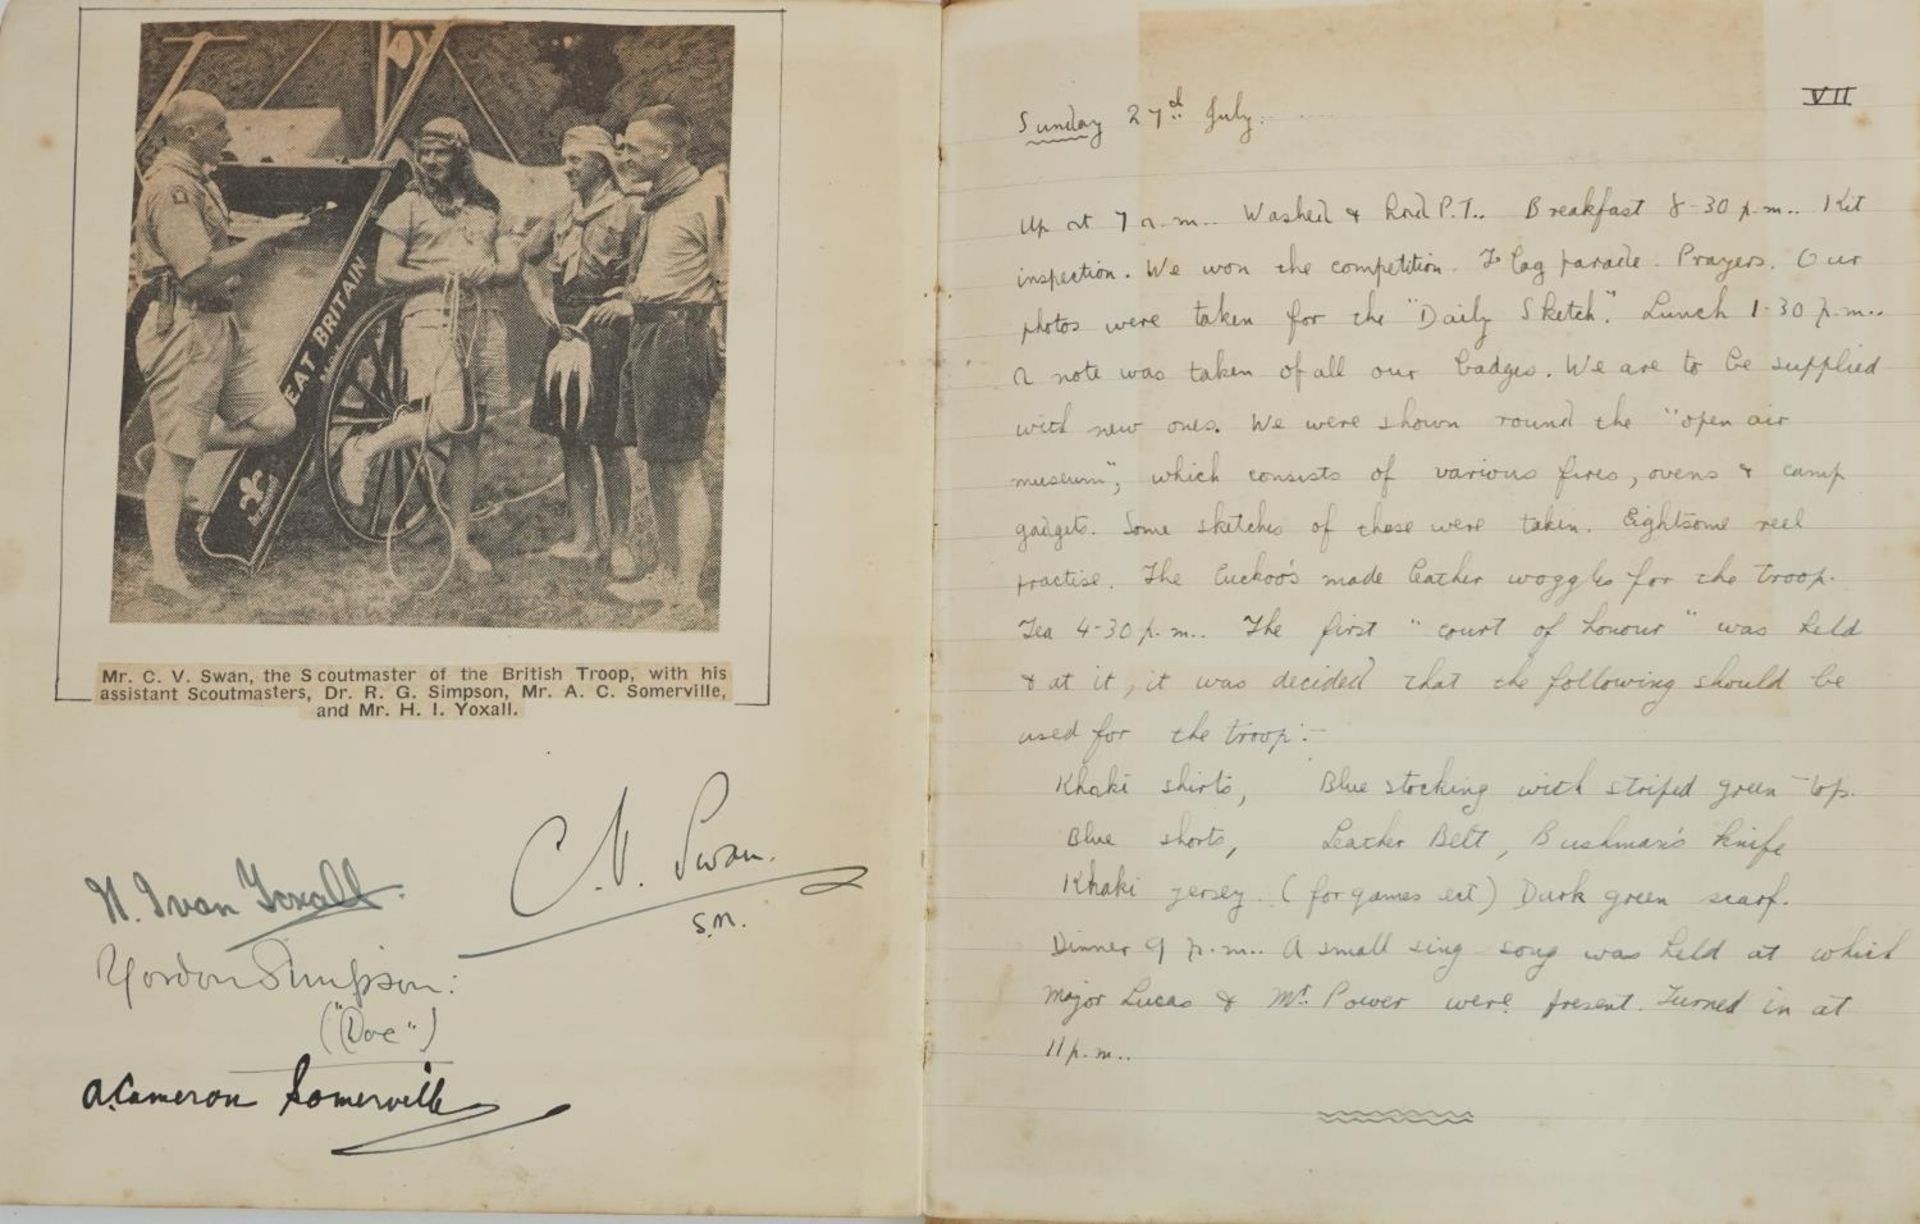 EAT BRITAIN
Mr. C. V. Swan, the Scoutmaster of the British Troop, with his
assistant Scoutmasters, Dr. R. G. Simpson, Mr. A. C. Somerville,
and Mr. H. I. Yoxall.
C. V. Swan.
S.M.
H. Ivan Yoxall.
Gordon Simpson:
("Doc")
A. Cameron Somerville
VII
Sunday 27d July.
Up at 7 a.m.. Washed & had P.T.. Breakfast 8-30 p.m.. Kit
inspection. We won the competition. Flag parade. Prayers. Our
photos were taken for the "Daily Sketch". Lunch 1-30 p.m..
A note was taken of all our badges. We are to be supplied
with new ones. We were shown round the "open air
museum", which consists of various fires, ovens & camp
gadgets. Some sketches of these were taken. Eightsome reel
practise. The Cuckoo's made leather woggles for the troop.
Tea 4-30 p.m.. The first "court of honour" was held
& at it, it was decided that the following should be
used for the troop:-
Khaki shirts, Blue stocking with striped green top.
Blue shorts, Leather Belt, Bushman's knife
Khaki jersey. (for games ect) Dark green scarf.
Dinner 9 p.m.. A small sing song was held at which
Major Lucas & Mr. Power were present. Turned in at
11 p.m..